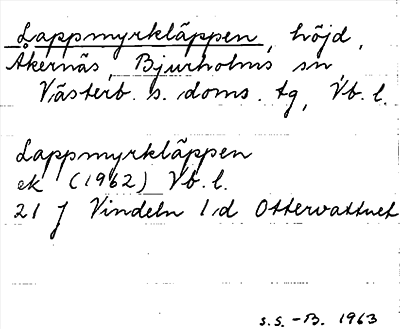 Lappmyrkläppen, höjd,
Åkernäs, Bjurholms sn,
Västerb. s. doms. tg, Vb. l.
Lappmyrkläppen
ek (1962) Vb. l.
21 J Vindeln 1d Ottervattnet
s.s. -B. 1963